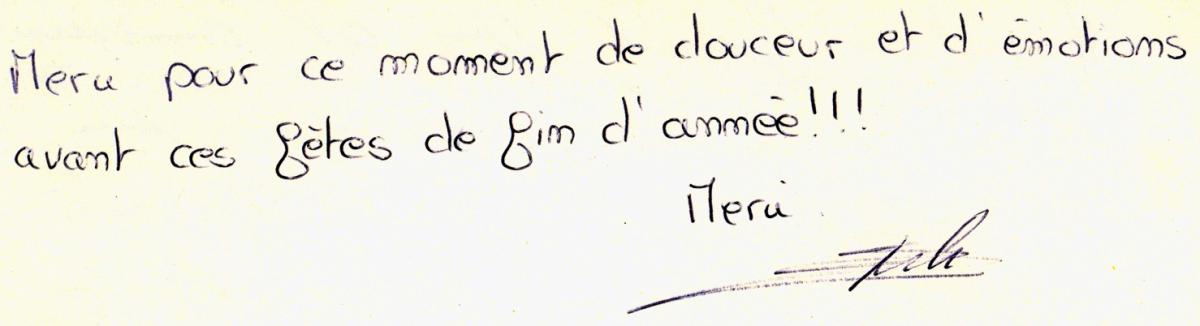 Merci pour ce moment de douceur et d'émotions
avant ces fêtes de fin d'année!!!
Merci